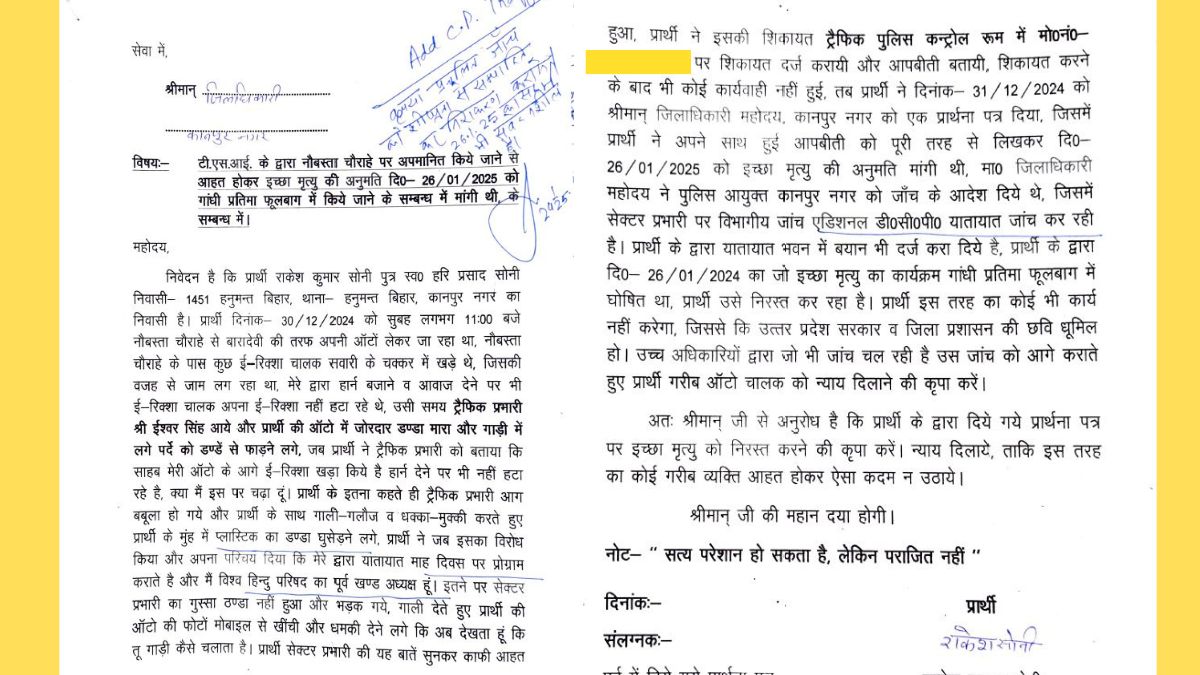 सेवा में,
श्रीमान् जिलाधिकारी
कानपुर नगर
Add C.P.
विषयः– टी.एस.आई. के द्वारा नौबस्ता चौराहे पर अपमानित किये जाने से
आहत होकर इच्छा मृत्यु की अनुमति दि0– 26/01/2025 को
गांधी प्रतिमा फूलबाग में किये जाने के सम्बन्ध में मांगी थी, के
सम्बन्ध में।
महोदय,
निवेदन है कि प्रार्थी राकेश कुमार सोनी पुत्र स्व0 हरि प्रसाद सोनी
निवासी– 1451 हनुमन्त बिहार, थाना– हनुमन्त बिहार, कानपुर नगर का
निवासी है। प्रार्थी दिनांक– 30/12/2024 को सुबह लगभग 11:00 बजे
नौबस्ता चौराहे से बारादेवी की तरफ अपनी ऑटों लेकर जा रहा था, नौबस्ता
चौराहे के पास कुछ ई–रिक्शा चालक सवारी के चक्कर में खड़े थे, जिसकी
वजह से जाम लग रहा था, मेरे द्वारा हार्न बजाने व आवाज देने पर भी
ई–रिक्शा चालक अपना ई–रिक्शा नहीं हटा रहे थे, उसी समय ट्रैफिक प्रभारी
श्री ईश्वर सिंह आये और प्रार्थी की ऑटो में जोरदार डण्डा मारा और गाड़ी में
लगे पर्दे को डण्डें से फाड़ने लगे, जब प्रार्थी ने ट्रैफिक प्रभारी को बताया कि
साहब मेरी ऑटो के आगे ई–रिक्शा खड़ा किये है हार्न देने पर भी नहीं हटा
रहे है, क्या मैं इस पर चढ़ा दूं। प्रार्थी के इतना कहते ही ट्रैफिक प्रभारी आग
बबूला हो गये और प्रार्थी के साथ गाली–गलौज व धक्का–मुक्की करते हुए
प्रार्थी के मुंह में प्लास्टिक का डण्डा घुसेड़ने लगे, प्रार्थी ने जब इसका विरोध
किया और अपना परिचय दिया कि मेरे द्वारा यातायात माह दिवस पर प्रोग्राम
कराते है और मैं विश्व हिन्दु परिषद का पूर्व खण्ड अध्यक्ष हूं। इतने पर सेक्टर
प्रभारी का गुस्सा ठण्डा नहीं हुआ और भड़क गये, गाली देते हुए प्रार्थी की
ऑटो की फोटों मोबाइल से खींची और धमकी देने लगे कि अब देखता हूं कि
तू गाड़ी कैसे चलाता है। प्रार्थी सेक्टर प्रभारी की यह बातें सुनकर काफी आहत
हुआ, प्रार्थी ने इसकी शिकायत ट्रैफिक पुलिस कन्ट्रोल रूम में मो0नं0–
पर शिकायत दर्ज करायी और आपबीती बतायी, शिकायत करने
के बाद भी कोई कार्यवाही नहीं हुई, तब प्रार्थी ने दिनांक– 31/12/2024 को
श्रीमान् जिलाधिकारी महोदय, कानपुर नगर को एक प्रार्थना पत्र दिया, जिसमें
प्रार्थी ने अपने साथ हुई आपबीती को पूरी तरह से लिखकर दि0–
26/01/2025 को इच्छा मृत्यु की अनुमति मांगी थी, मा0 जिलाधिकारी
महोदय ने पुलिस आयुक्त कानपुर नगर को जाँच के आदेश दिये थे, जिसमें
सेक्टर प्रभारी पर विभागीय जांच एडिशनल डी0सी0पी0 यातायात जांच कर रही
है। प्रार्थी के द्वारा यातायात भवन में बयान भी दर्ज करा दिये है, प्रार्थी के द्वारा
दि0– 26/01/2024 का जो इच्छा मृत्यु का कार्यक्रम गांधी प्रतिमा फूलबाग में
घोषित था, प्रार्थी उसे निरस्त कर रहा है। प्रार्थी इस तरह का कोई भी कार्य
नहीं करेगा, जिससे कि उत्तर प्रदेश सरकार व जिला प्रशासन की छवि धूमिल
हो। उच्च अधिकारियों द्वारा जो भी जांच चल रही है उस जांच को आगे कराते
हुए प्रार्थी गरीब ऑटो चालक को न्याय दिलाने की कृपा करें।
अतः श्रीमान् जी से अनुरोध है कि प्रार्थी के द्वारा दिये गये प्रार्थना पत्र
पर इच्छा मृत्यु को निरस्त करने की कृपा करें। न्याय दिलाये, ताकि इस तरह
का कोई गरीब व्यक्ति आहत होकर ऐसा कदम न उठाये।
श्रीमान् जी की महान दया होगी।
नोट– “ सत्य परेशान हो सकता है, लेकिन पराजित नहीं ”
दिनांकः–
प्रार्थी
संलग्नकः–
राकेश सोनी